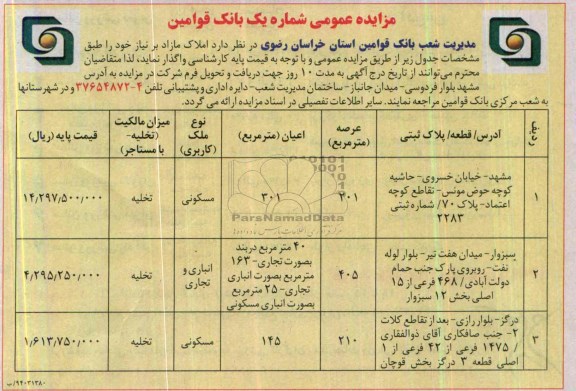 مزایده عمومی شماره یک بانک قوامین
مدیریت شعب بانک قوامین استان خراسان رضوی در نظر دارد املاک مازاد بر نیاز خود را طبق
مشخصات جدول زیر از طریق مزایده عمومی و با توجه به قیمت پایه کارشناسی واگذار نماید، لذا متقاضیان
محترم می‌توانند از تاریخ درج آگهی به مدت ۱۰ روز جهت دریافت و تحویل فرم شرکت در مزایده به آدرس
مشهد بلوار فردوسی- میدان جانباز- ساختمان مدیریت شعب- دایره اداری و پشتیبانی تلفن ۴-۳۷۶۵۴۸۷۲ و در شهرستانها
به شعب مرکزی بانک قوامین مراجعه نمایند. سایر اطلاعات تفصیلی در اسناد مزایده ارائه می گردد.
ردیف
آدرس/ قطعه/ پلاک ثبتی
عرصه (مترمربع)
اعیان (مترمربع)
نوع ملک (کاربری)
میزان مالکیت (تخلیه- با مستاجر)
قیمت پایه (ریال)
۱
مشهد- خیابان خسروی- حاشیه
کوچه حوض مونس- تقاطع کوچه
اعتماد- پلاک ۷۰/ شماره ثبتی
۲۲۸۳
۳۰۱
۳۰۱
مسکونی
تخلیه
۱۴/۲۹۷/۵۰۰/۰۰۰
۲
سبزوار- میدان هفت تیر- بلوار لوله
نفت- روبروی پارک جنب حمام
دولت آبادی/ ۴۶۸ فرعی از ۱۵
اصلی بخش ۱۲ سبزوار
۴۰۵
۴۰ متر مربع دربند
بصورت تجاری- ۱۶۳
مترمربع بصورت انباری
تجاری- ۲۵ مترمربع
بصورت انباری مسکونی
انباری و
تجاری
تخلیه
۴/۲۹۵/۲۵۰/۰۰۰
۳
درگز- بلوار رازی- بعد از تقاطع کلات
۲- جنب صافکاری آقای ذوالفقاری
/ ۱۴۷۵ فرعی از ۴۲ فرعی از ۱
اصلی قطعه ۳ درگز بخش قوچان
۲۱۰
۱۴۵
مسکونی
تخلیه
۱/۶۱۳/۷۵۰/۰۰۰
ParsNamadData
۹۴۰۲۱۳۸۰/ب